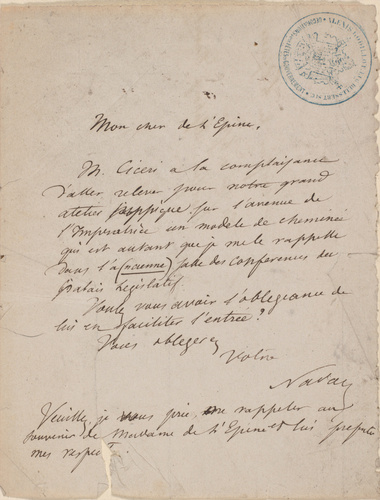 Mon cher de l'Epine,
M. Ciceri a la complaisance
d'aller relever pour notre grand
atelier sur l'avenue de
l'Imperatrice un modele de cheminée
qui est autant que je me le rappelle
dans l'a(ncienne) salle des Conferences du
Palais Législatif
Voulez vous avoir l'obligeance de
lui en faciliter l'entrée?
Vous obligerez
Votre
Nadar
Veuillez je vous prie me rappeler au
souvenir de Madame de l'Epine et lui présenter
mes respects.